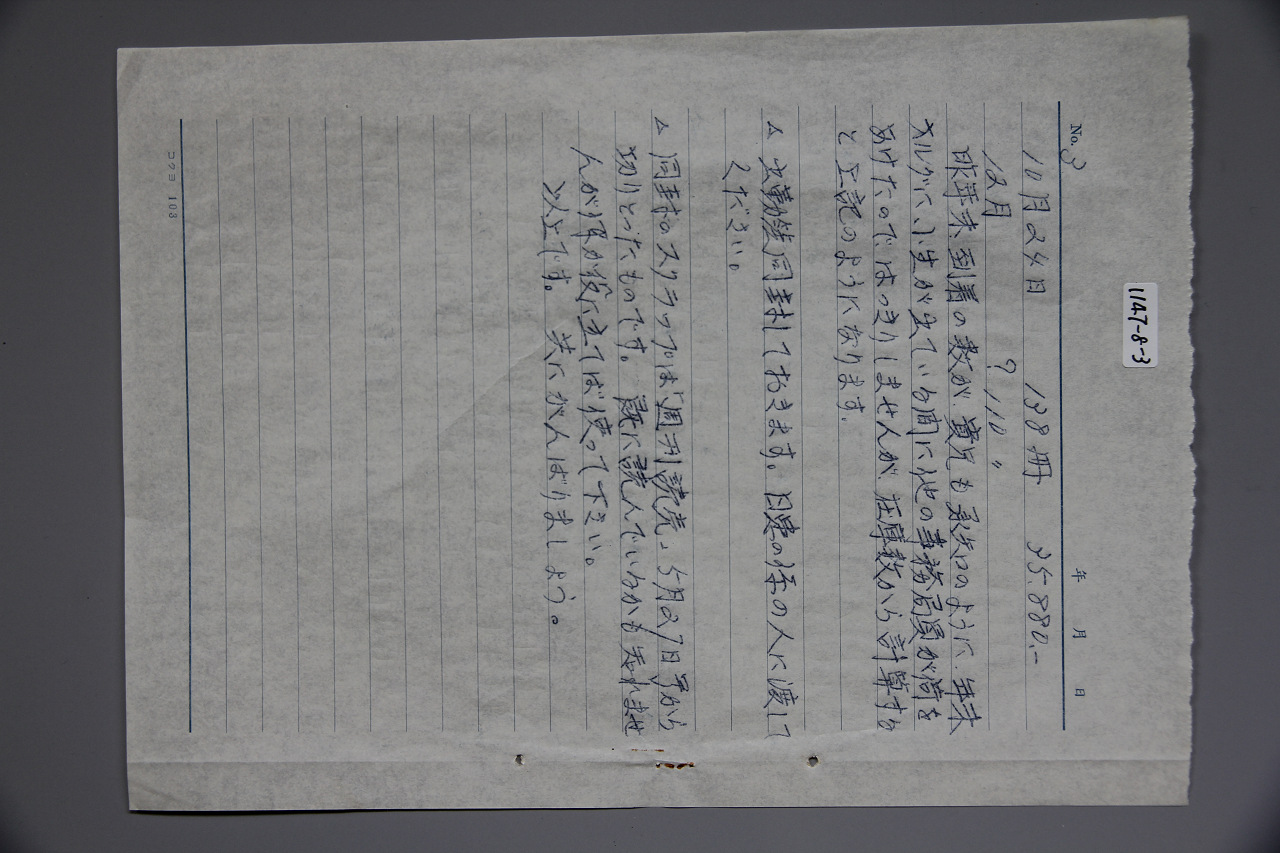 1147-8-3
No. 3
年 月 日
10月24日 138冊 35.880.-
12月 ? 110 〃
昨年末到着の数が貴兄も承知のように、年末
オルグに小生が出ている間に他の事務局員が荷を
あけたのではっきりしませんが、在庫数から計算する
と上記のようになります。
△ 出勤簿同封しておきます。日患の係の人に渡して
ください。
△ 同封のスクラップは「週刊読売」5月27日号から
切りとったものです。既に読んでいるかも知れませ
んが何か役に立てば使って下さい。
以上です。共にがんばりましょう。
コクヨ 103